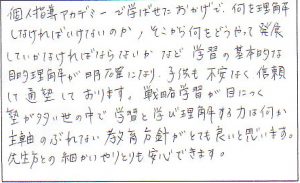 個人指導アカデミーで学ばせたおかげで、何を理解
しなければいけないのか、そこから何をどうやって発展
していかなければならないかなど 学習の基本的な
目的理解が明確になり、子供も不安なく信頼
して通塾しております。戦略学習が目につく
塾が多い世の中で 学習と学び理解する力は何か
主軸のぶれてない教育方針がとても良いと思います。
先生方との細かいやりとりも安心できます。